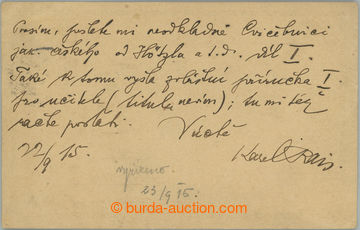 Prosím, pošlete mi neodkladně Cvičebnici
jaz. českého od Hötzla a t. d. díl I.
Také k tomu vyšla zvláštní příručka I.
pro učitele (titulu nevím); tu mi též
račte poslati.
V úctě
22/9 15. Karel Rais
vyřízeno.
23/9 15.
© burda-auction.com